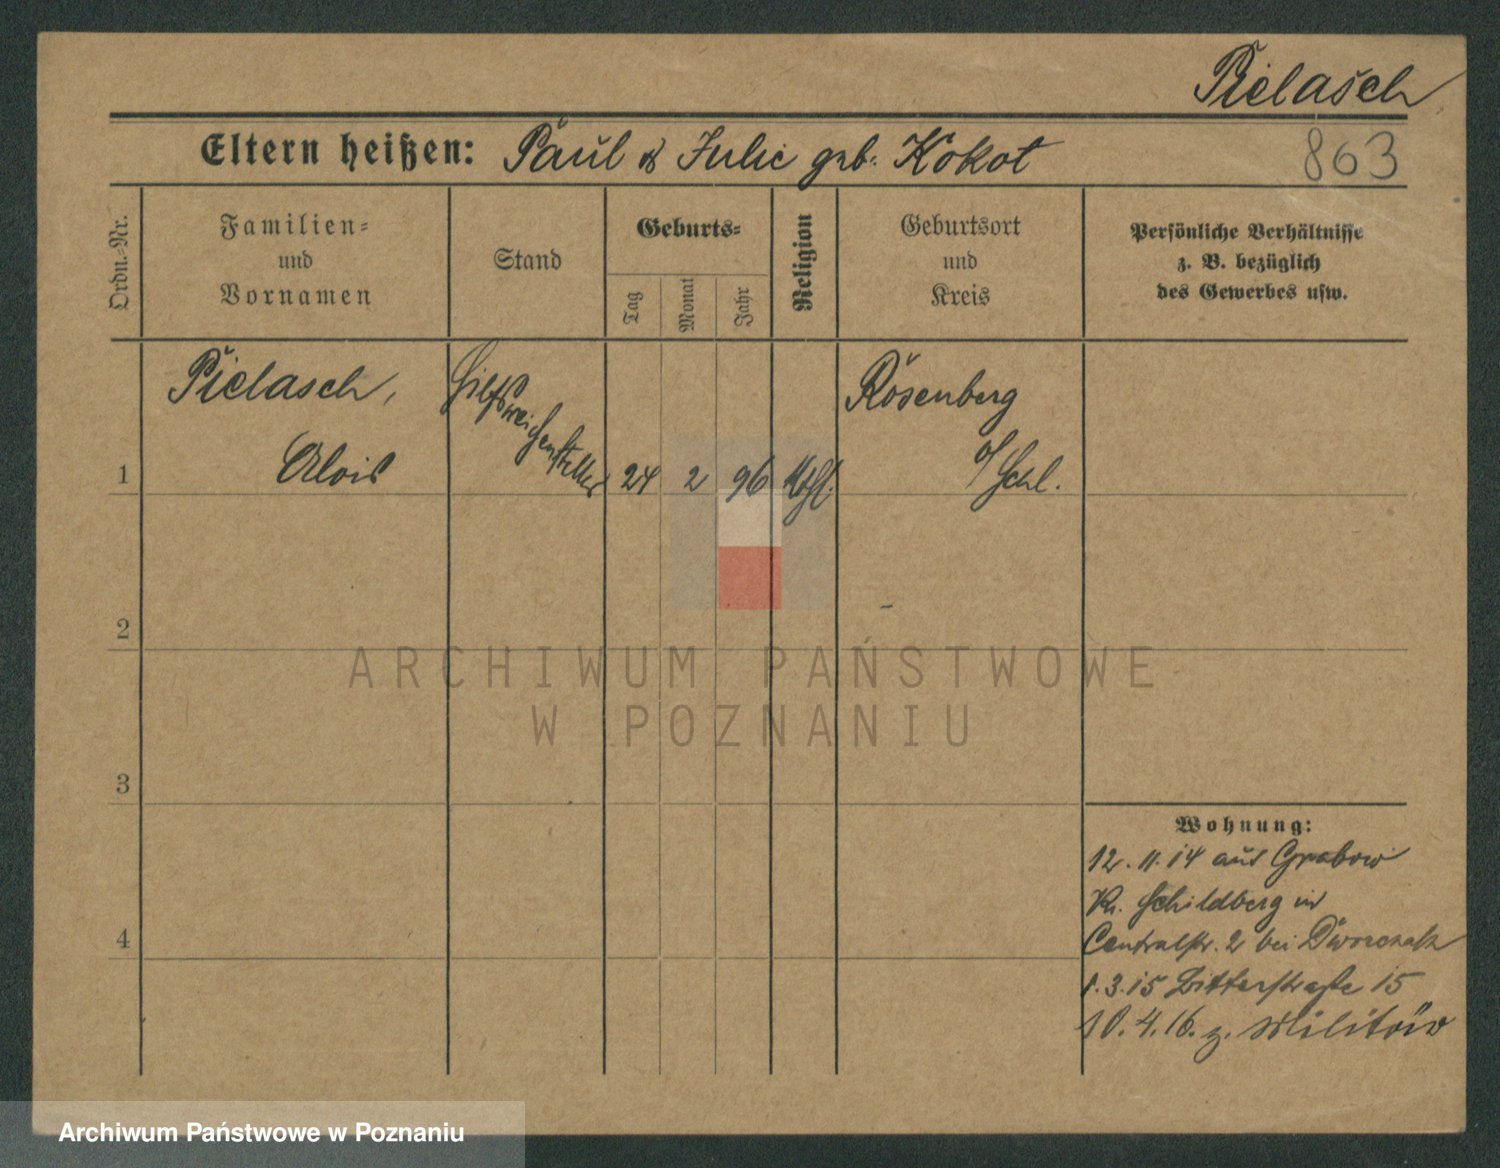 Pielasch
Eltern heißen: Paul & Julie geb. Kokot
863
Ordn.-Nr.
Familien- und Vornamen
Stand
Geburts-
Tag
Monat
Jahr
Religion
Geburtsort und Kreis
Persönliche Verhältnisse
z. B. bezüglich
des Gewerbes usw.
Pielasch,
Hilfsweichensteller
Rosenberg
1
Alois
24
2
96
kath.
O/Schl.
2
ARCHIWUM PAŃSTWOWE
W POZNANIU
3
Wohnung:
12.11.14 aus Grabow
Kr. Schildberg in
4
Centralstr. 2 bei Dworczak
1.3.15 Bitterstraße 15
10.4.16. z. Militär
Archiwum Państwowe w Poznaniu